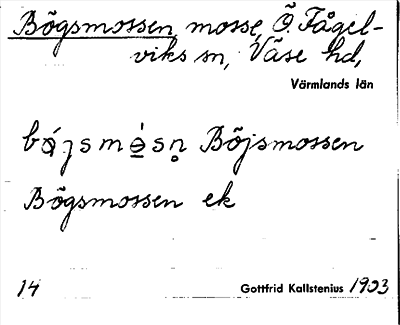 Bögsmossen, mosse, Ö. Fågel-
viks sn, Väse hd,
Värmlands län
Böjsmossen
Bögsmossen ek
14 Gottfrid Kallstenius 1903